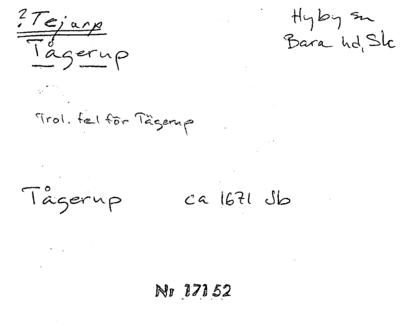 ? Tejarp
Tågerup
Hyby sn
Bara hd, Sk
Trol. fel för Tägerup
Tågerup ca 1671 Jb
Nr 17152